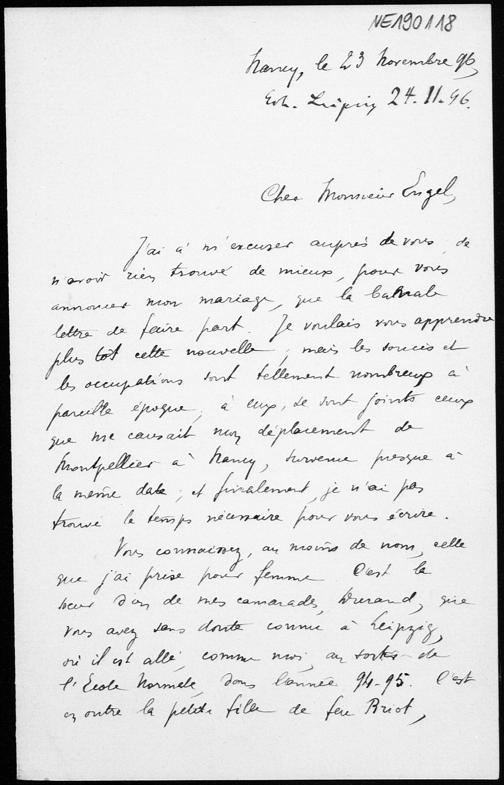 NE190118
Nancy, le 23 Novembre 96,
Leipzig 24.11.96.
Cher Monsieur Engel,
J'ai à m'excuser auprès de vous, de
n'avoir rien trouvé de mieux, pour vous
annoncer mon mariage, que la banale
lettre de faire part. Je voulais vous apprendre
plus tôt cette nouvelle, mais les soucis et
les occupations sont tellement nombreux à
pareille époque; à eux, se sont joints ceux
que me causait mon déplacement de
Montpellier à Nancy, survenu presque à
la même date; et finalement, je n'ai pas
trouvé le temps nécessaire pour vous écrire.
Vous connaissez, au moins de nom, celle
que j'ai prise pour femme. C'est la
sœur d'un de mes camarades, Durand, que
vous avez sans doute connu à Leipzig,
où il est allé, comme moi, au sortir de
l'Ecole Normale, dans l'année 94-95. C'est
en outre la petite fille de feu Briot,